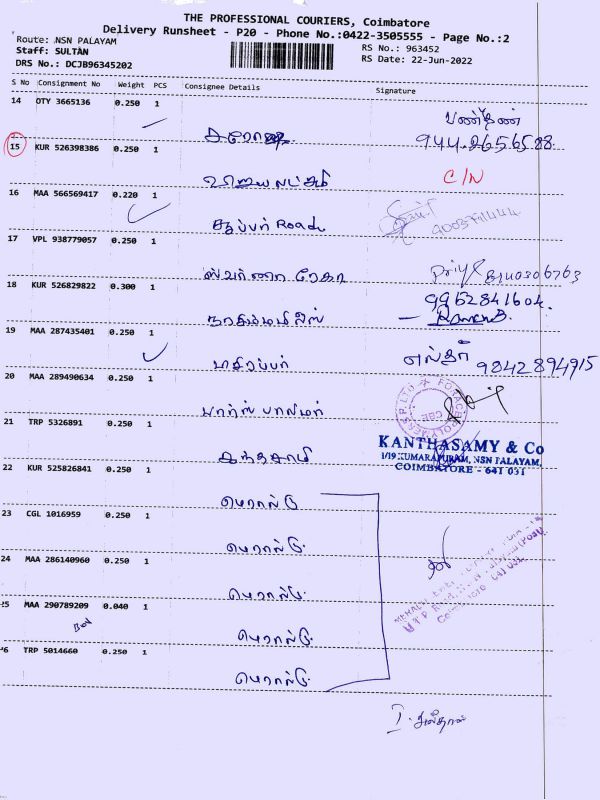 THE PROFESSIONAL COURIERS, Coimbatore
Delivery Runsheet - P20 - Phone No.:0422-3505555 - Page No.:2
Route: NSN PALAYAM
RS No.: 963452
Staff: SULTAN
RS Date: 22-Jun-2022
DRS No.: DCJB96345202
S No Consignment No Weight PCS Consignee Details Signature
14 OTY 3665136 0.250 1
15 KUR 526398386 0.250 1
C/N
16 MAA 566569417 0.220 1
சூப்பர் Road
17 VPL 938779057 0.250 1
ஸ்வர்ண ரேகா
Priya 8140306763
18 KUR 526829822 0.300 1
9952841604
19 MAA 287435401 0.250 1
9842894915
20 MAA 289490634 0.250 1
21 TRP 5326891 0.250 1
கந்தசாமி
KANTHASAMY & Co
1/19 KUMARAPURAM, NSN PALAYAM,
COIMBATORE - 641 031
22 KUR 525826841 0.250 1
மெரால்டு
23 CGL 1016959 0.250 1
மெரால்டு
24 MAA 286140960 0.250 1
மெரால்டு
25 MAA 290789209 0.040 1
மெரால்டு
26 TRP 5014660 0.250 1
மெரால்டு